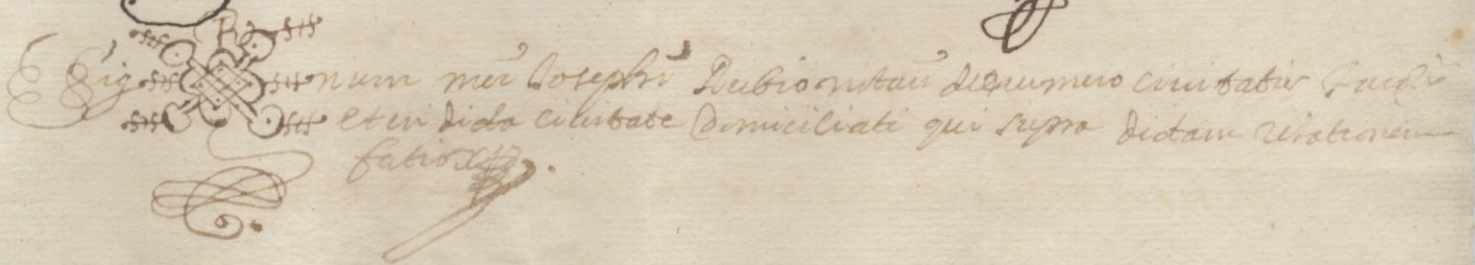 Signum mei Josephi Rubio notarii de numero civitatis
et in dicta civitate Domiciliati qui supra dictam